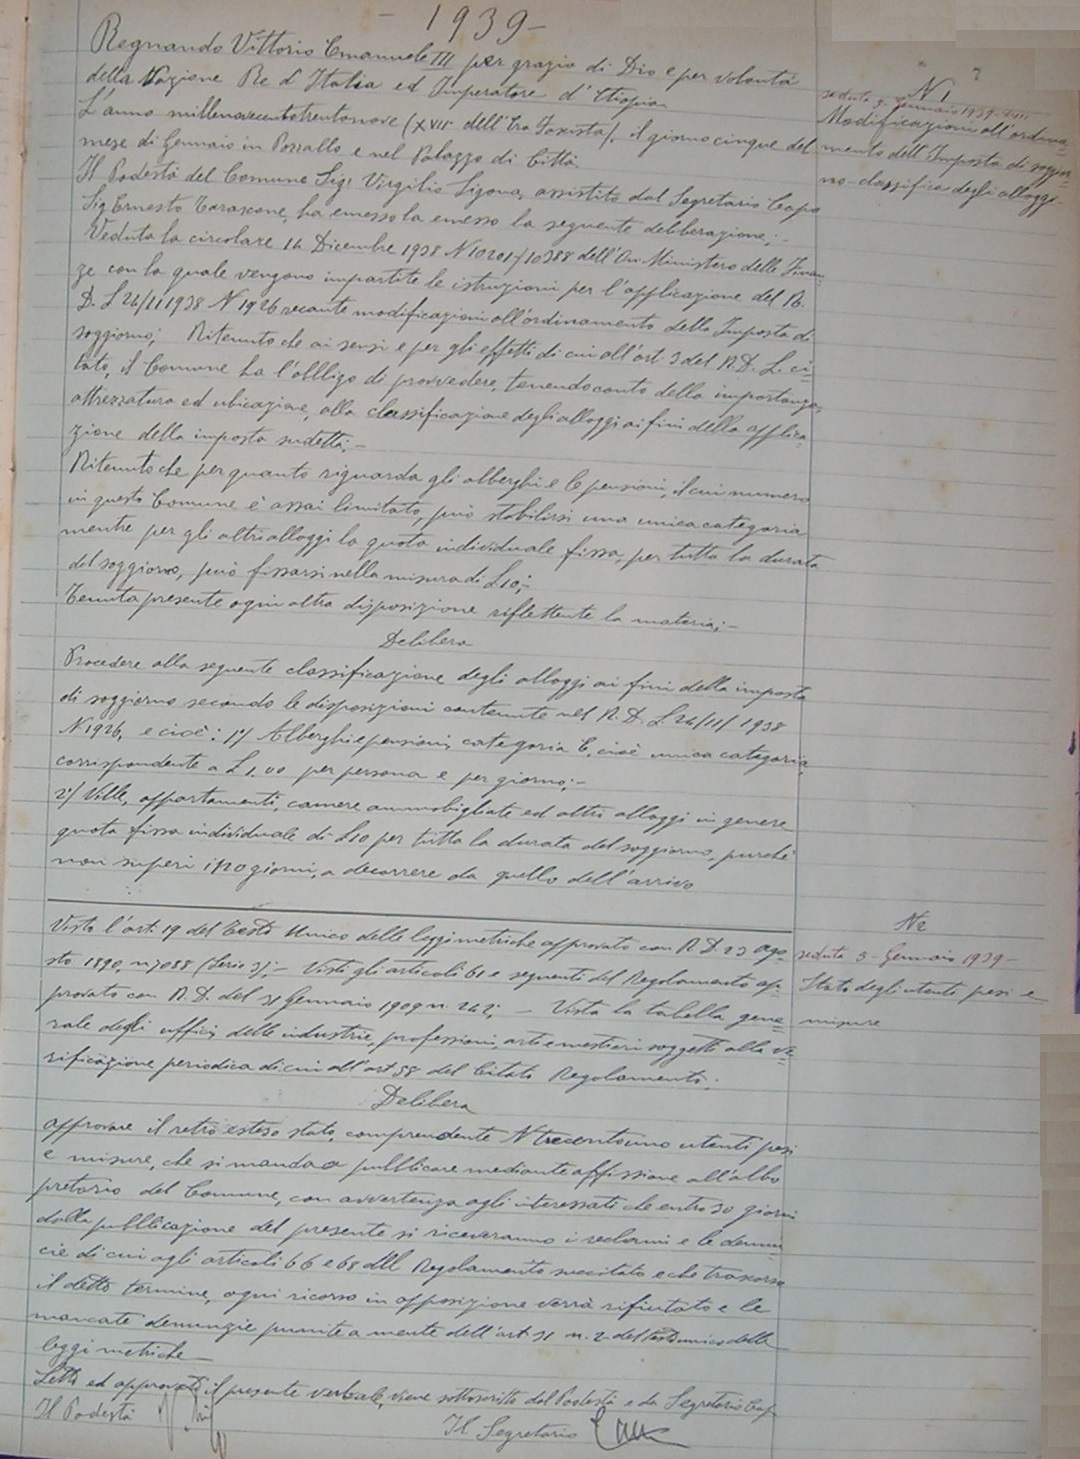 - 1939 -
Regnando Vittorio Emanuele III per grazia di Dio e per volontà
della Nazione Re d'Italia ed Imperatore d'Etiopia
L'anno millenovecentotrentanove (XVII dell'Era Fascista), il giorno cinque del
mese di Gennaio in Pozzallo e nel Palazzo di Città.
Il Podestà del Comune Sig. Virgilio Sigona, assistito dal Segretario Capo
Sig. Ernesto Tarascone, ha emesso la emesso la seguente deliberazione;-
Veduta la circolare 14 Dicembre 1938 N 10201/10388 dell'On Ministero delle Finan=
ze con la quale vengono impartite le istruzioni per l'applicazione del R.
D. L 24/11 1938 N 1926 recante modificazioni all'ordinamento della Imposta di
soggiorno; Ritenuto che ai sensi e per gli effetti di cui all'art. 3 del R.D. L. ci=
tato, il Comune ha l'obbligo di provvedere, tenendo conto della importanza,
attrezzatura ed ubicazione, alla classificazione degli alloggi ai fini della applica=
zione della imposta sudetta;-
Ritenuto che per quanto riguarda gli alberghi e le pensioni, il cui numero
in questo Comune è assai limitato, può stabilirsi una unica categoria
mentre per gli altri alloggi la quota individuale fissa, per tutta la durata
del soggiorno, può fissarsi nella misura di L 10;-
Tenuta presente ogni altra disposizione riflettente la materia;-
Delibera
Procedere alla seguente classificazione degli alloggi ai fini della imposta
di soggiorno secondo le disposizioni contenute nel R. D. L. 24/11/1938
N 1926, e cioè: 1°/ Alberghi e pensioni, categoria C, cioè unica categoria,
corrispondente a L 1,00 per persona e per giorno;-
2°/ Ville, appartamenti, camere ammobigliate ed altri alloggi in genere
quota fissa individuale di L 10 per tutta la durata del soggiorno, purchè
non superi i 120 giorni, a decorrere da quello dell'arrivo
N 1
seduta 5. Gennaio 1939-XVII
Modificazioni all'ordina=
mento dell'Imposta di soggior=
no - classifica degli alloggi.
Visto l'art. 19 del Testo Unico delle leggi metriche approvato con R. D. 23 ago=
sto 1890, n 7088 (Serie 3);- Visti gli articoli 61 e seguenti del Regolamento ap=
provato con R. D. del 31 Gennaio 1909 n. 242; - Vista la tabella gene=
rale degli uffici, delle industrie, professioni, arti e mestieri soggetti alla ve=
rificazione periodica di cui all'art. 58 del Citato Regolamento;
Delibera
approvare il retro esteso stato, comprendente N trecentouno utenti pesi
e misure, che si manda a pubblicare mediante affissione all'albo
pretorio del Comune, con avvertenza agli interessati che entro 30 giorni
dalla pubblicazione del presente si riceveranno i reclami e le denun=
cie di cui agli articoli 66 e 68 dell Regolamento succitato e che trascorso
il detto termine, ogni ricorso in opposizione verrà rifiutato e le
mancate denunzie punite a mente dell'art. 31 n. 2 del testo unico delle
leggi metriche
N 2
seduta 5 - Gennaio 1939 -
Stato degli utenti pesi e
misure
Letto ed approvato il presente verbale, viene sottoscritto dal Podestà e da Segretario Cap
Il Podestà
Il Segretario